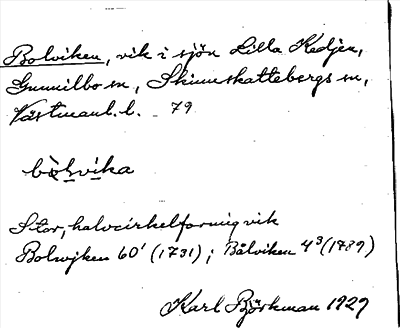 Bolviken, vik i sjön Lilla Kedjen,
Gunnilbo sn, Skinnskattebergs sn,
Västmanl. l. 79
bòlvika
Stor, halvcirkelformig vik
Bolwijken 60' (1731); Bålviken 4³ (1789)
Karl Björkman 1929